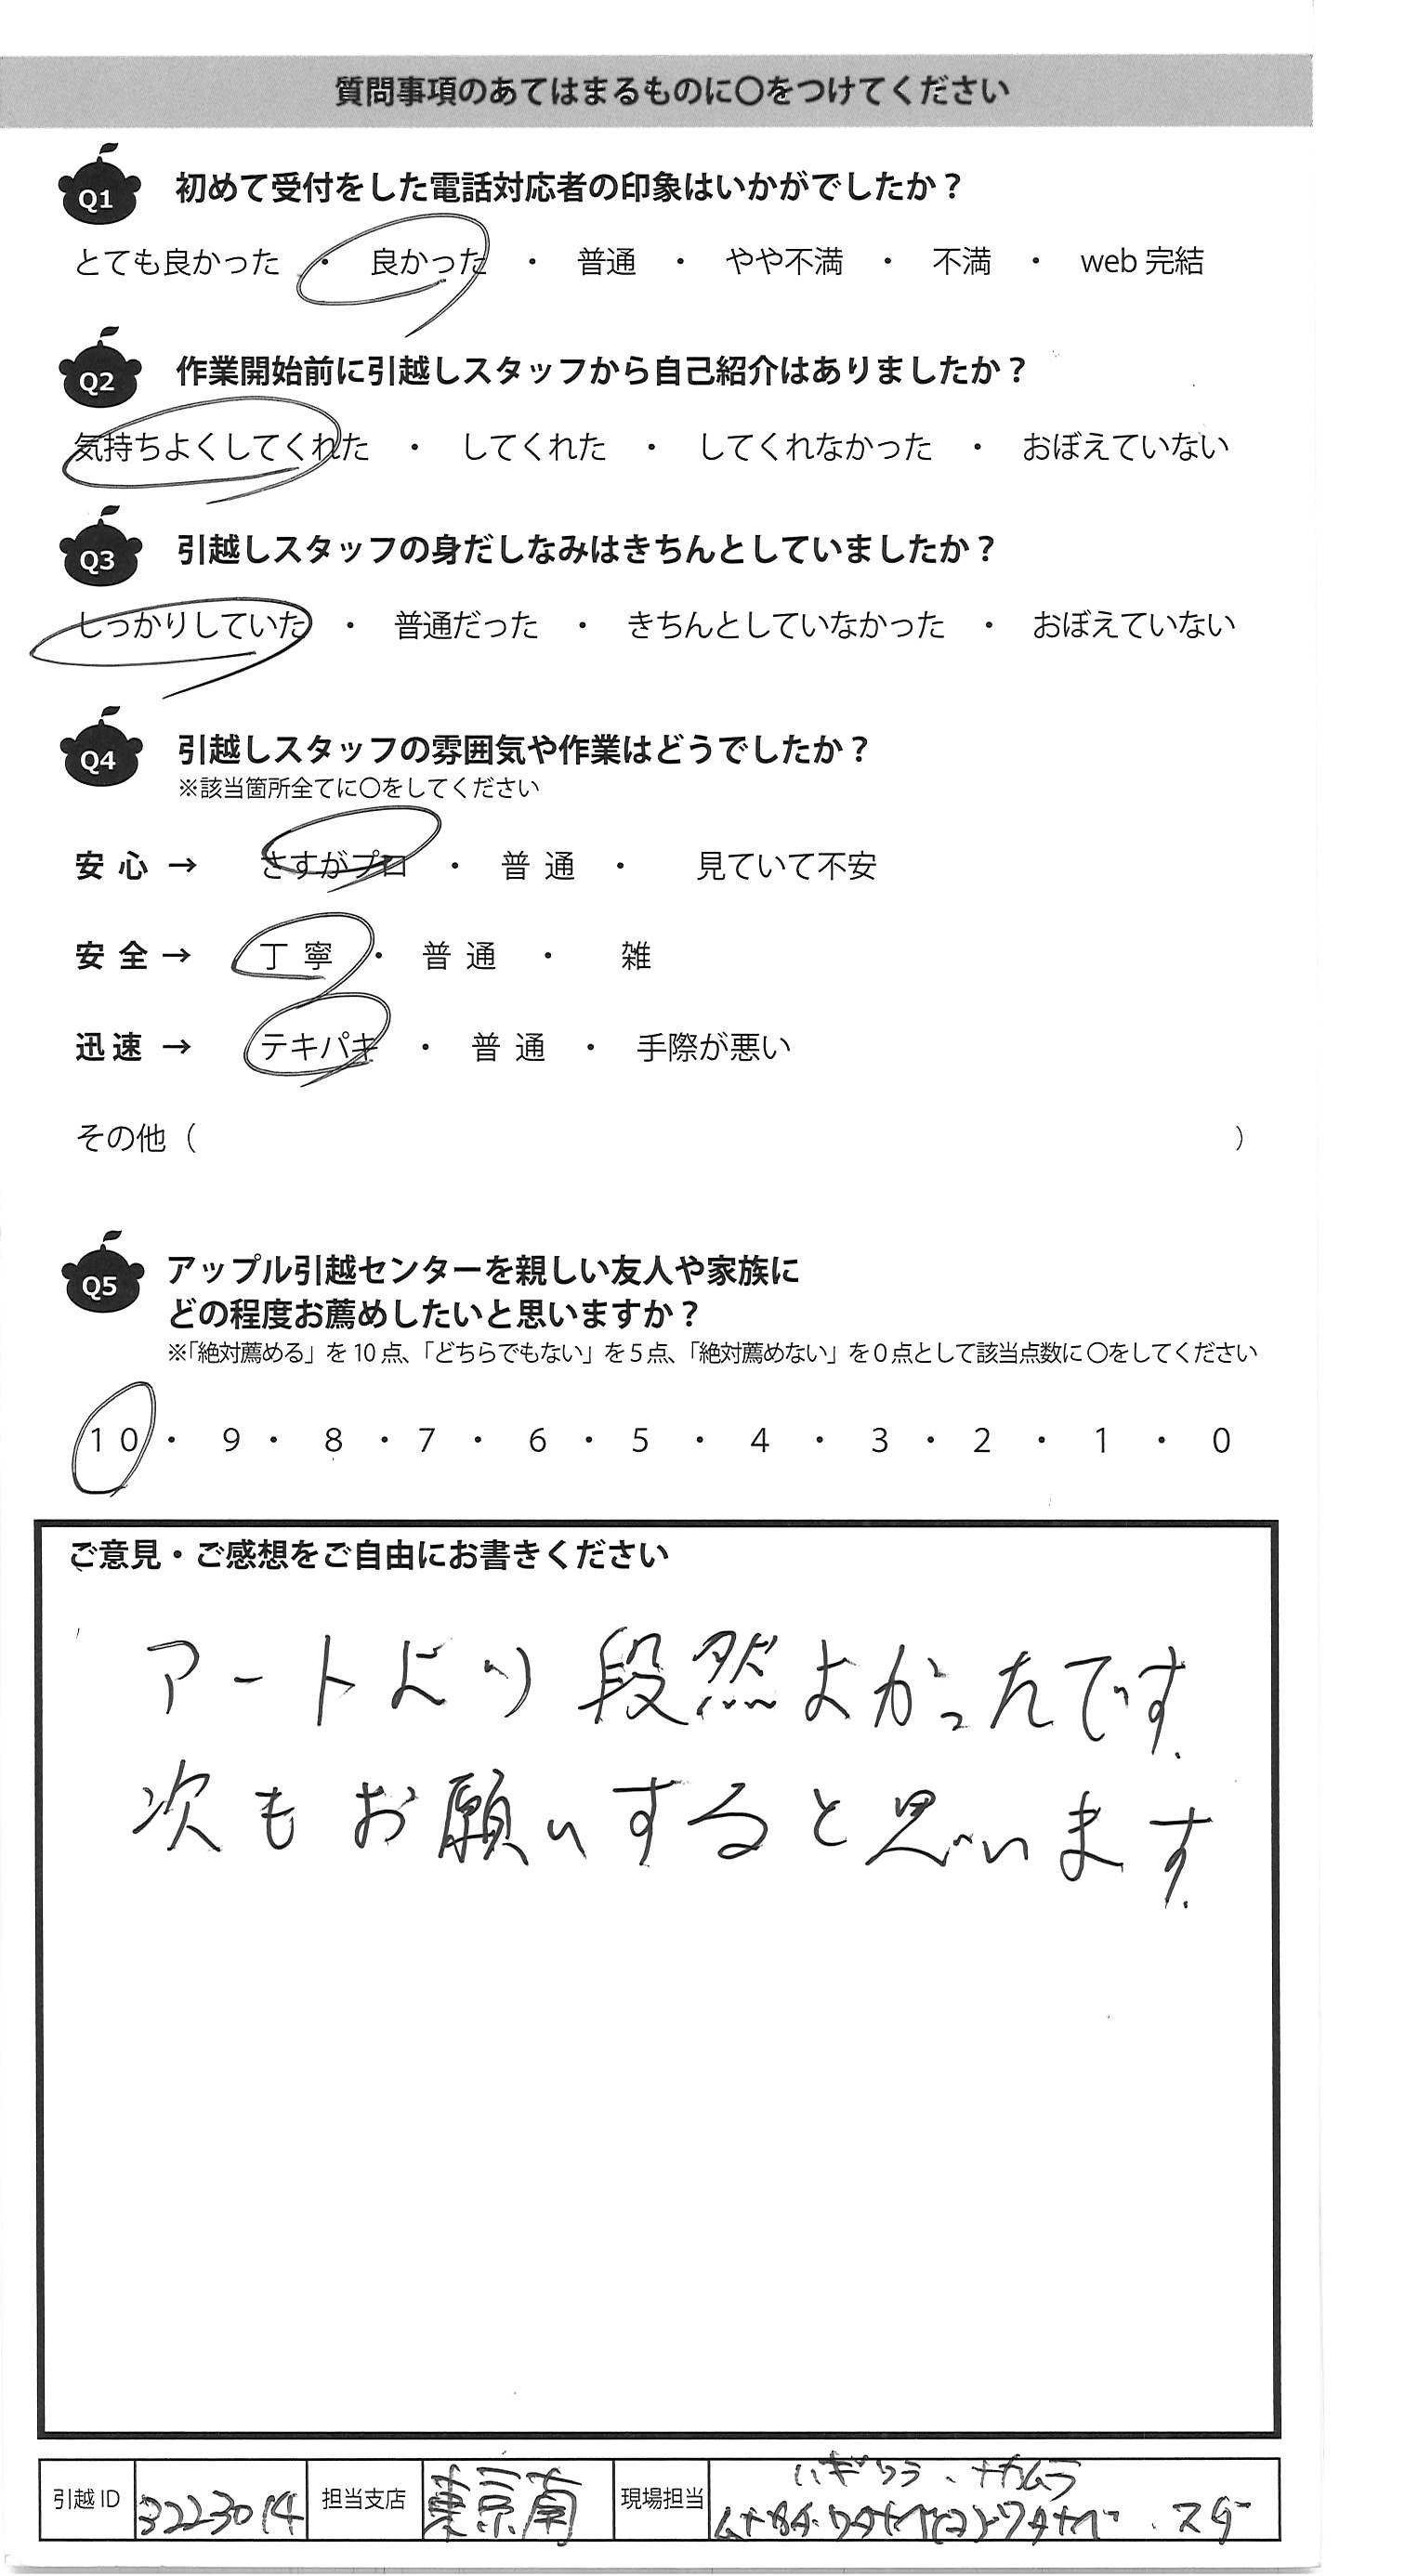 質問事項のあてはまるものに〇をつけてください
Q1 初めて受付をした電話対応者の印象はいかがでしたか？
とても良かった ・ 良かった ・ 普通 ・ やや不満 ・ 不満 ・ web 完結
Q2 作業開始前に引越しスタッフから自己紹介はありましたか？
気持ちよくしてくれた ・ してくれた ・ してくれなかった ・ おぼえていない
Q3 引越しスタッフの身だしなみはきちんとしていましたか？
しっかりしていた ・ 普通だった ・ きちんとしていなかった ・ おぼえていない
Q4 引越しスタッフの雰囲気や作業はどうでしたか？
※該当箇所全てに〇をしてください
安心 → さすがプロ ・ 普通 ・ 見ていて不安
安全 → 丁寧 ・ 普通 ・ 雑
迅速 → テキパキ ・ 普通 ・ 手際が悪い
その他（ ）
Q5 アップル引越センターを親しい友人や家族に
どの程度お薦めしたいと思いますか？
※「絶対薦める」を10点、「どちらでもない」を5点、「絶対薦めない」を0点として該当点数に〇をしてください
10 ・ 9 ・ 8 ・ 7 ・ 6 ・ 5 ・ 4 ・ 3 ・ 2 ・ 1 ・ 0
ご意見・ご感想をご自由にお書きください
アートより段然よかったです.
次もお願いすると思います.
引越ID 3223014 担当支店 東京南 現場担当 ハギワラ、ナカムラ
スダ